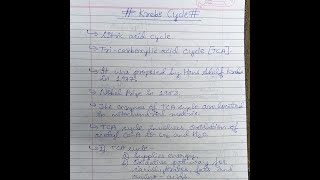 # Krebs Cycle #
→ Citric acid cycle
→ Tri-carboxylic acid cycle [TCA]
→ It was proposed by Hans Adolf Krebs
in 1937.
→ Nobel Prize in 1953
→ The enzymes of TCA cycle are located
in mitochondrial matrix.
→ TCA cycle involves oxidation of
acetyl CoA to CO2 and H2O.
→ TCA cycle-
Supplies energy
pathway for
carbohydrates, fats and
amino-acids